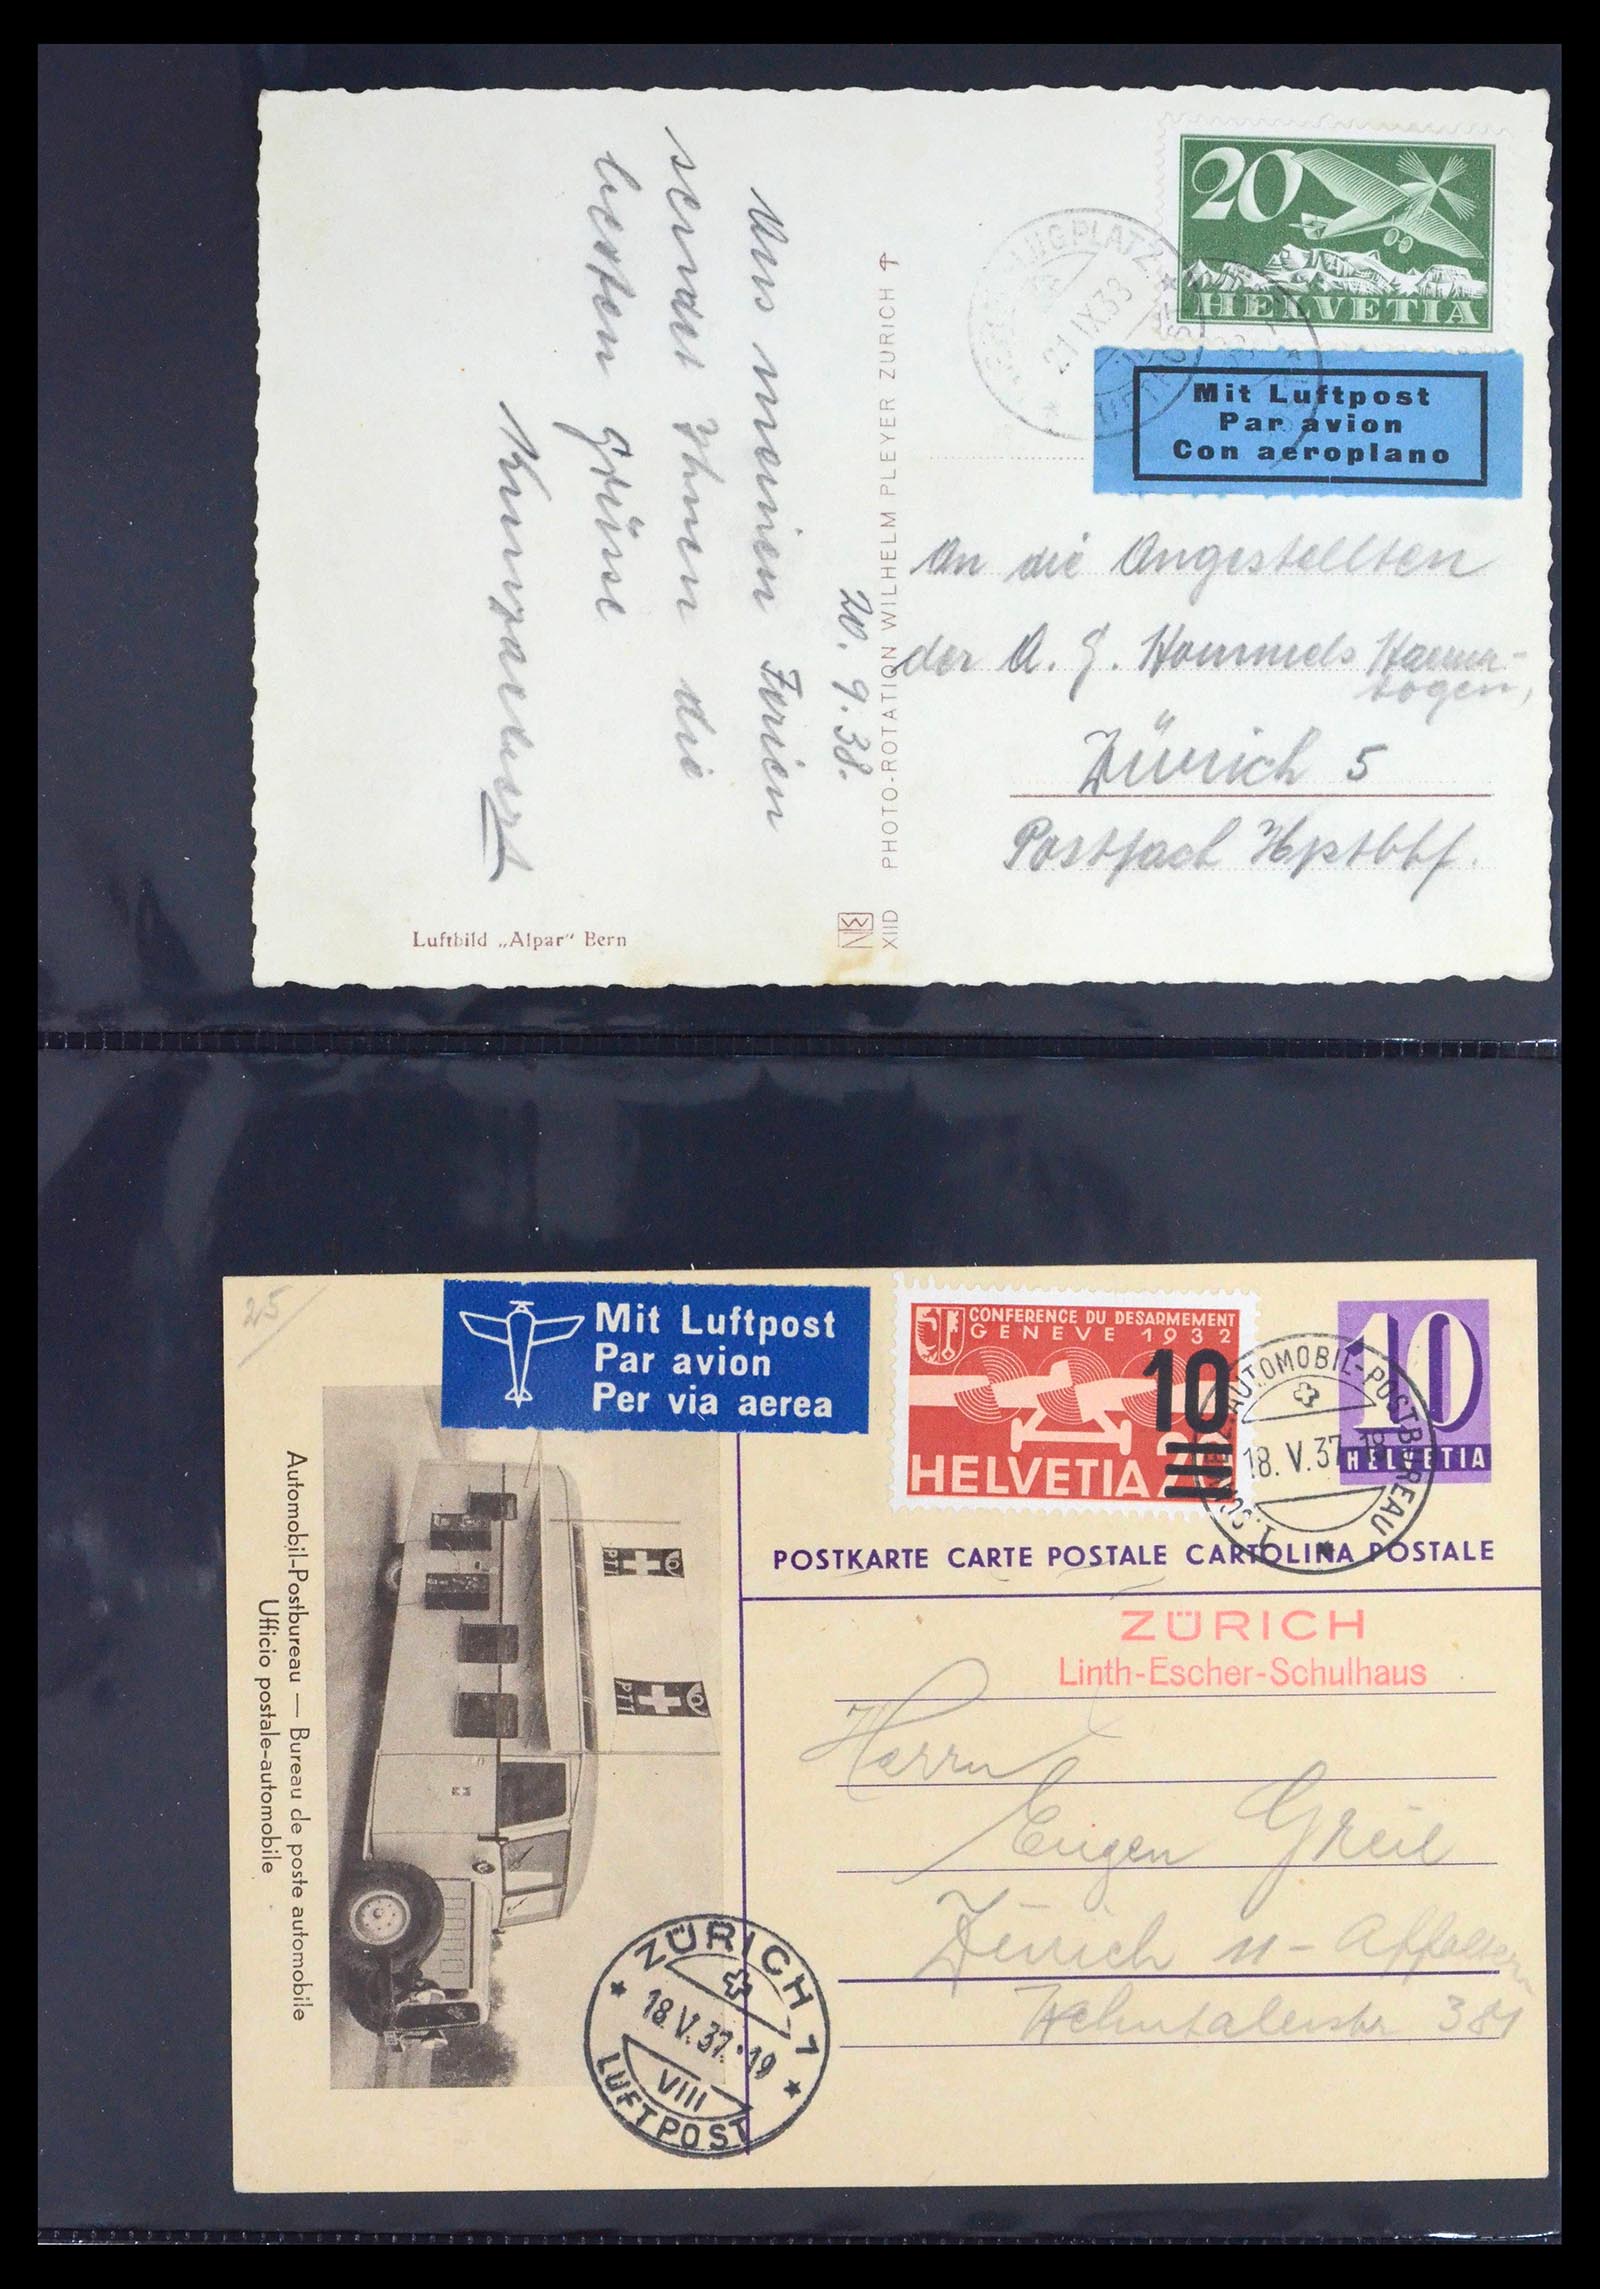 20
HELVETIA
FLUGPLATZ
21.IX.38
Mit Luftpost
Par avion
Con aeroplano
An die Angestellten
der A. G. Hommels
Zürich 5
Postfach Hptbhf.
20. 9. 38.
Aus meinen Ferien
sendet Ihnen die
besten Grüsse
PHOTO-ROTATION WILHELM PLEYER ZÜRICH
XIID
Luftbild „Alpar" Bern
25
Mit Luftpost
Par avion
Per via aerea
CONFERENCE DU DESARMEMENT
GENEVE 1932
10
HELVETIA
10
HELVETIA
AUTOMOBIL-POSTBUREAU
18.V.37.18
POSTKARTE CARTE POSTALE CARTOLINA POSTALE
ZÜRICH
Linth-Escher-Schulhaus
Herrn
Eugen Greil
Zürich 11 - Affoltern
Wehntalerstr. 381
PTT
PTT
Automobil-Postbureau — Bureau de poste automobile
Ufficio postale-automobile
ZÜRICH 1
18.V.37.19
VIII
LUFTPOST